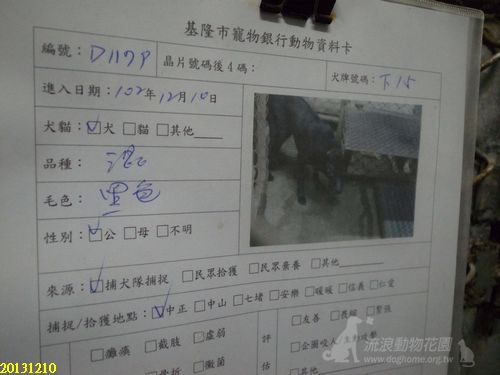 基隆市寵物銀行動物資料卡
編號：D1179 晶片號碼後4碼： 犬牌號碼：下15
進入日期：102年12月10日
犬貓：☑犬 □貓 □其他
品種：混
毛色：黑色
性別：☑公 □母 □不明
來源：☑捕犬隊捕捉 □民眾拾獲 □民眾棄養 □其他
捕捉/拾獲地點：☑中正 □中山 □七堵 □安樂 □暖暖 □信義 □仁愛
□癱瘓 □截肢 □虛弱 評 □友善 □畏縮 □緊張
□骨折 □黴菌 估 □企圖咬人
□其他
流浪動物花園
www.doghome.org.tw
20131210